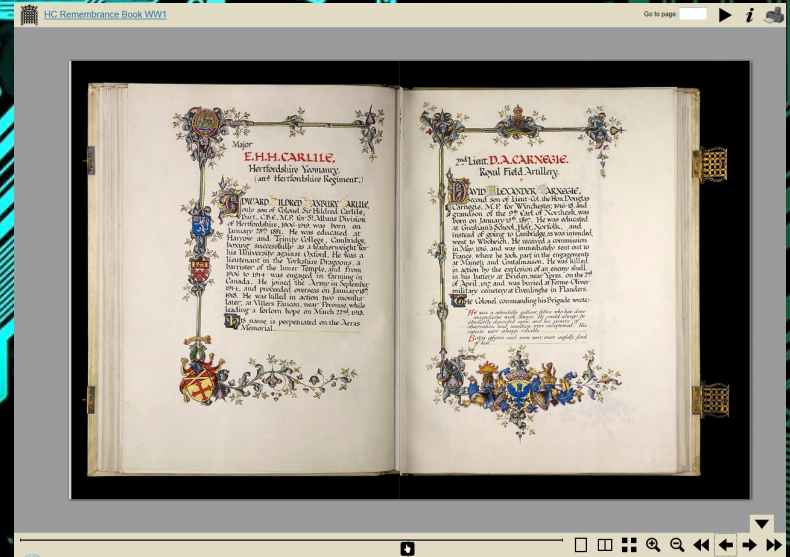 HC Remembrance Book WW1
Go to page:
Major
E.H.H.CARLILE,
Hertfordshire Yeomanry.
(and Hertfordshire Regiment,)
EDWARD HILDRED HANBURY CARLILE,
only son of Colonel Sir Hildred Carlile,
Bart., C.B.E., M.P. for St. Albans Division
of Hertfordshire, 1906-1919, was born on
January 28th 1881. He was educated at
Harrow and Trinity College, Cambridge,
boxing successfully as a featherweight for
his University against Oxford. He was a
lieutenant in the Yorkshire Dragoons, a
barrister of the Inner Temple, and from
1906 to 1914 was engaged in farming in
Canada. He joined the Army in September
1914, and proceeded overseas on January
1918. He was killed in action two months
later, at Villers Faucon, near Peronne, while
leading a forlorn hope on March 22nd, 1918.
His name is perpetuated on the Arras
Memorial.
2nd Lieut. D.A.CARNEGIE.
Royal Field Artillery.
DAVID ALEXANDER CARNEGIE,
second son of Lieut-Col. the Hon. Douglas
Carnegie, M.P. for Winchester, 1916-18, and
grandson of the 9th Earl of Northesk, was
born on January 1897. He was educated
at Gresham's School, Holt, Norfolk, and
instead of going to Cambridge as was intended,
went to Woolwich. He received a commission
in May, 1916, and was immediately sent out to
France, where he took part in the engagements
at Mametz and Contalmaison. He was killed
in action by the explosion of an enemy shell
in his battery at Brielen, near Ypres, on the
of April, 1917, and was buried at Ferme-Olivier
military cemetery at Elverdinghe in Flanders.
The Colonel commanding his Brigade wrote:-
He was a splendidly gallant fellow who has done
magnificent work always. He could always be
absolutely depended upon, and his powers of
observation and intuition were exceptional. His
reports were always reliable.
Both officers and men were most awfully fond
of him.